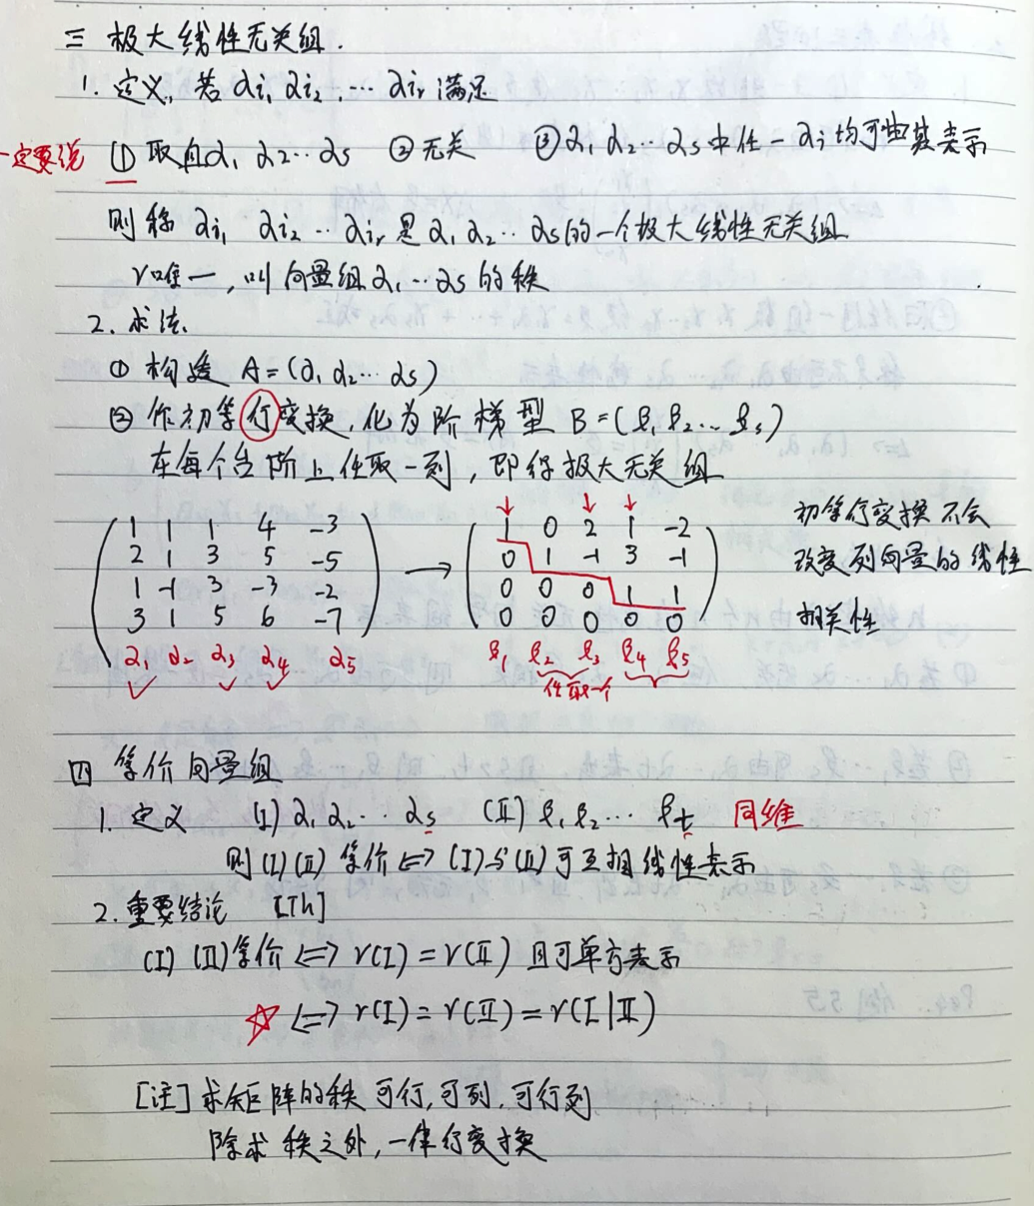 三 极大线性无关组.
1. 定义, 若 αi₁ αi₂, … αiᵣ 满足
一定要说 ① 取自α₁ α₂…αs ② 无关 ③ α₁ α₂…αs中任一αi均可由其表示
则称 αi₁ αi₂ … αiᵣ 是 α₁ α₂…αs的一个极大线性无关组
r唯一, 叫向量组α₁…αs的秩
2. 求法
① 构造 A=(α₁ α₂…αs)
② 作初等行变换, 化为阶梯型 B=(β₁β₂…βs)
在每个台阶上任取一列, 即得极大无关组
1 1 1 4 -3 → 1 0 2 1 -2 初等行变换不会
2 1 3 5 -5 0 1 -1 3 -1 改变列向量的线性
1 -1 3 -3 -2 0 0 0 1 1 相关性
3 1 5 6 -7 0 0 0 0 0
α₁ α₂ α₃ α₄ α₅ β₁ β₂ β₃ β₄ β₅
任取一个
四 等价向量组
1. 定义 (I) α₁ α₂…αs (II) β₁ β₂…βt 同维
则(I)(II) 等价⟺(I)与(II)可互相线性表示
2. 重要结论 [Th]
(I) (II)等价⟺ r(I)=r(II) 且可单方表示
☆ ⟺ r(I)=r(II)=r(I|II)
[注] 求矩阵的秩 可行, 可列, 可行列
除求秩之外, 一律行变换